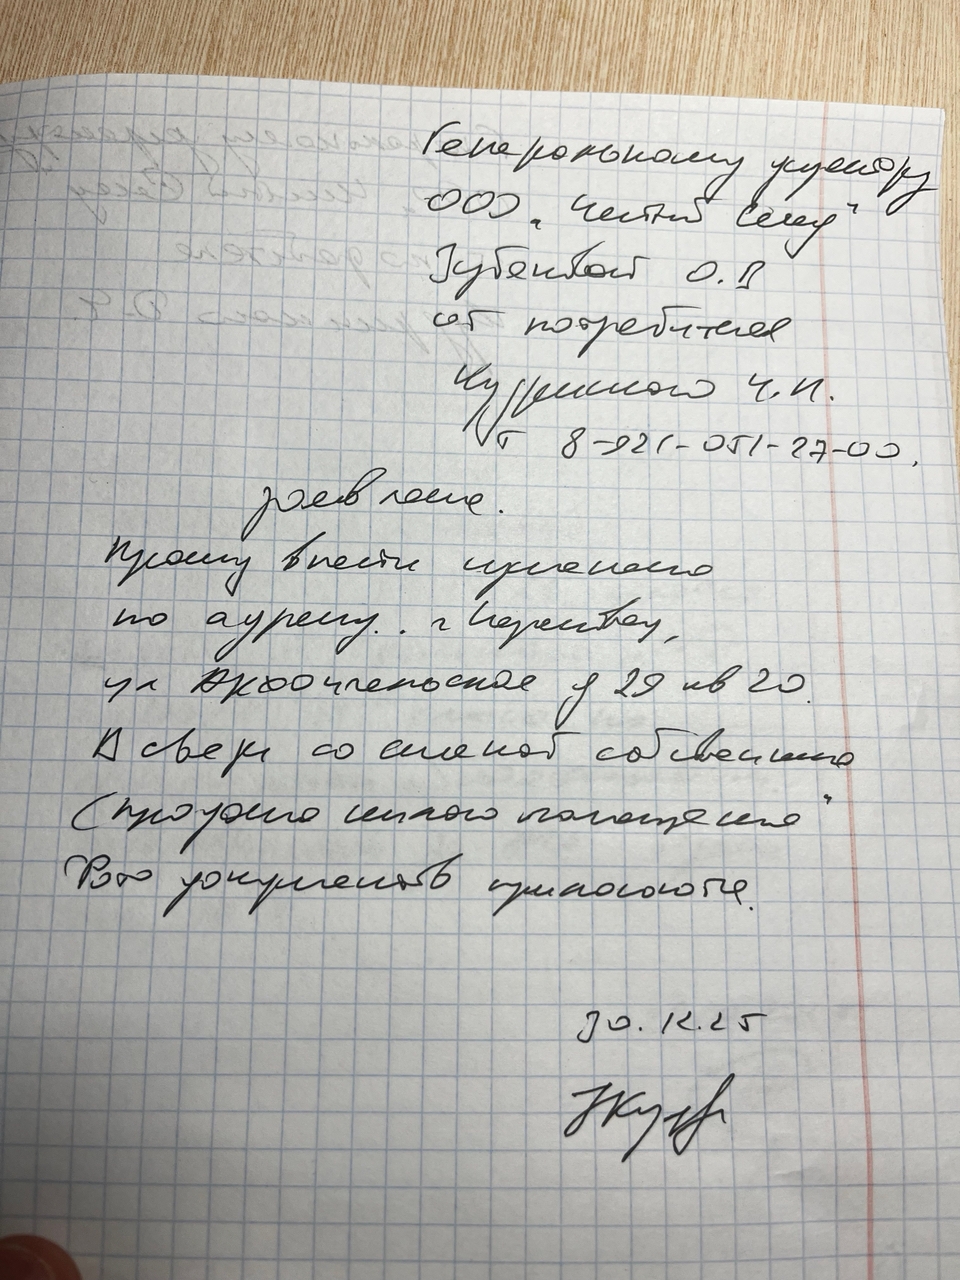 Генеральному директору
ООО "Чистый Север"
Зубенкой О.В
от потребителя
Ч.И.
т 8-921-051-27-00.
заявление.
Прошу внести изменения
по адресу: г
ул д 29 кв 20.
В связи со сменой собственника
(продажа жилого помещения"
Фото документов прилагаются.
30.12.25